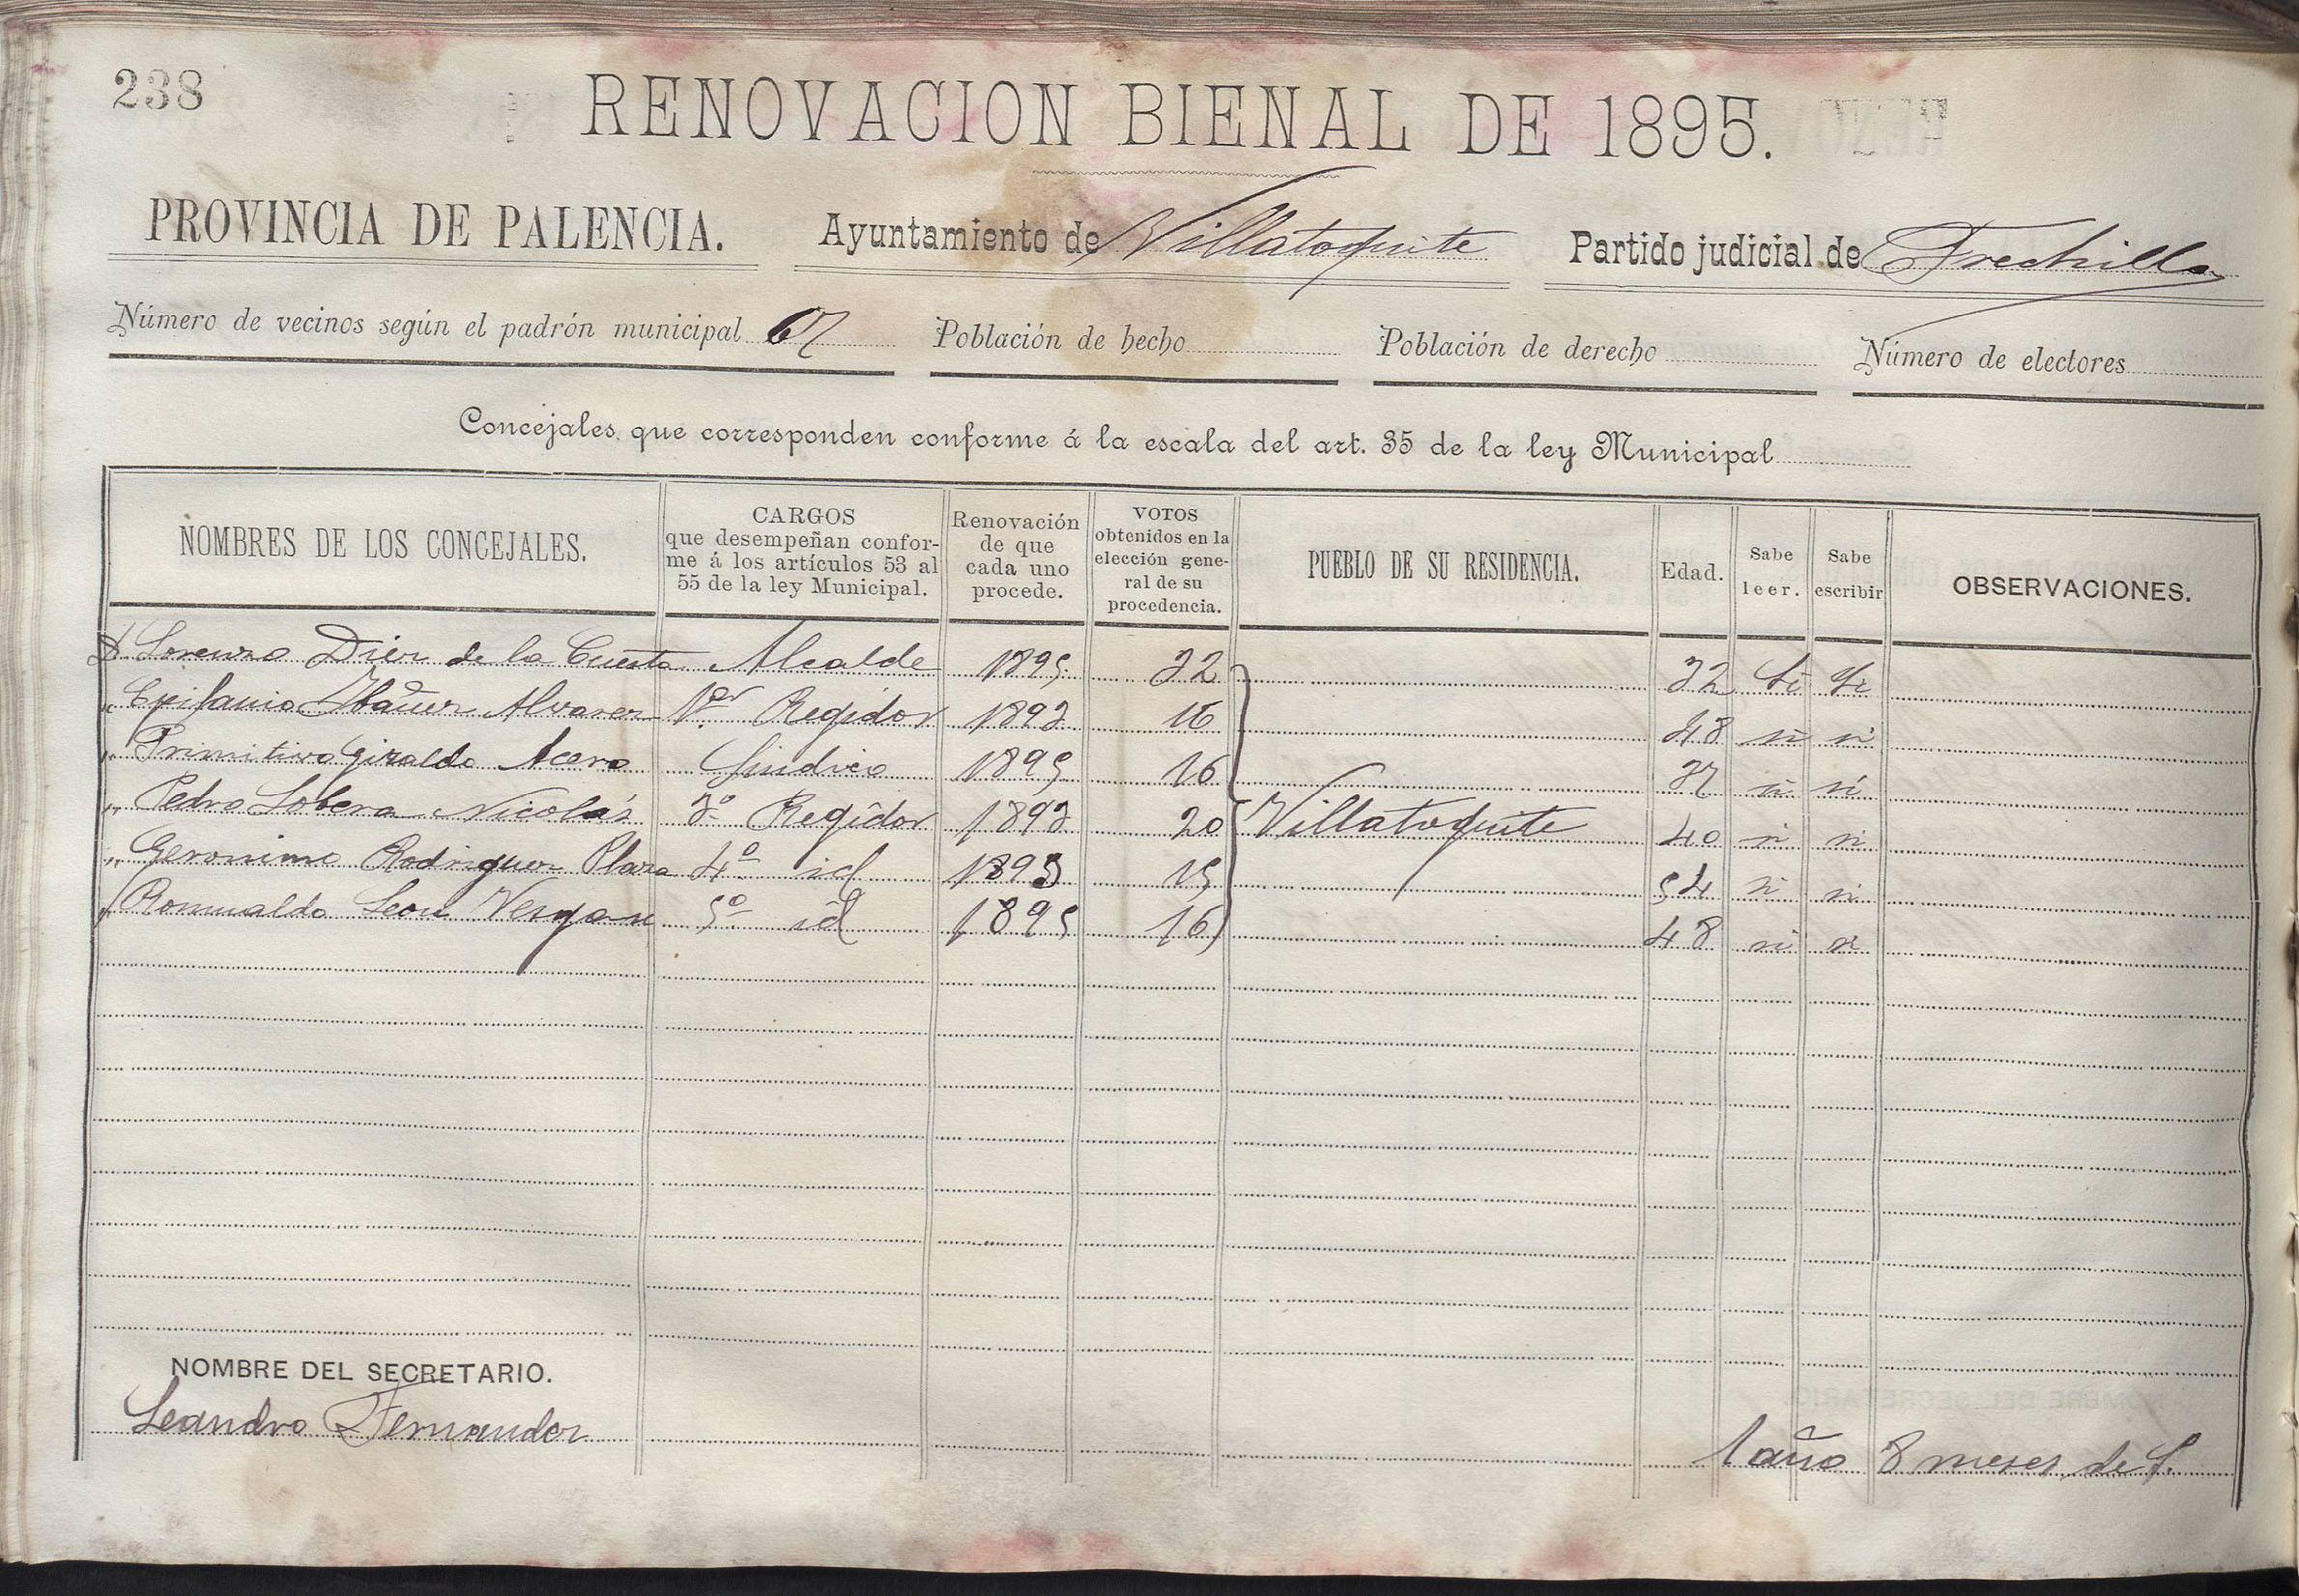 238
RENOVACION BIENAL DE 1895.
PROVINCIA DE PALENCIA. Ayuntamiento de Villatoquite Partido judicial de Frechilla
Número de vecinos según el padrón municipal 67 Población de hecho Población de derecho Número de electores
Concejales que corresponden conforme á la escala del art. 35 de la ley Municipal
NOMBRES DE LOS CONCEJALES. CARGOS que desempeñan conforme á los artículos 53 al 55 de la ley Municipal. Renovación de que cada uno procede. VOTOS obtenidos en la elección general de su procedencia. PUEBLO DE SU RESIDENCIA. Edad. Sabe leer. Sabe escribir OBSERVACIONES.
D. Lorenzo Diez de la Cuesta Alcalde 1895 22 32 Si Si
" Epifanio Ibañez Alvarez 1er Regidor 1893 16 48 si si
" Primitivo Giraldo Acero Sindico 1895 16 37 si si
" Pedro Lobera Nicolás 3º Regidor 1893 20 Villatoquite 40 si si
" Geronimo Rodriguez Plaza 4º id 1893 15 54 si si
" Romualdo Leon Vergara 5º id 1895 16 48 si si
NOMBRE DEL SECRETARIO.
Leandro Fernandez 1 año 8 meses de S.